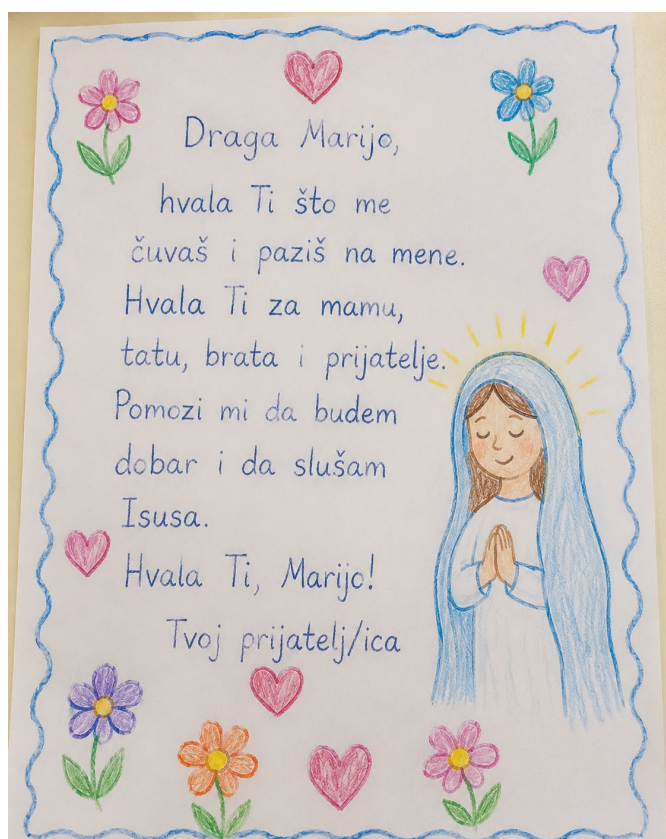 Draga Marijo,
hvala Ti što me
čuvaš i paziš na mene.
Hvala Ti za mamu,
tatu, brata i prijatelje.
Pomozi mi da budem
dobar i da slušam
Isusa.
Hvala Ti, Marijo!
Tvoj prijatelj/ica